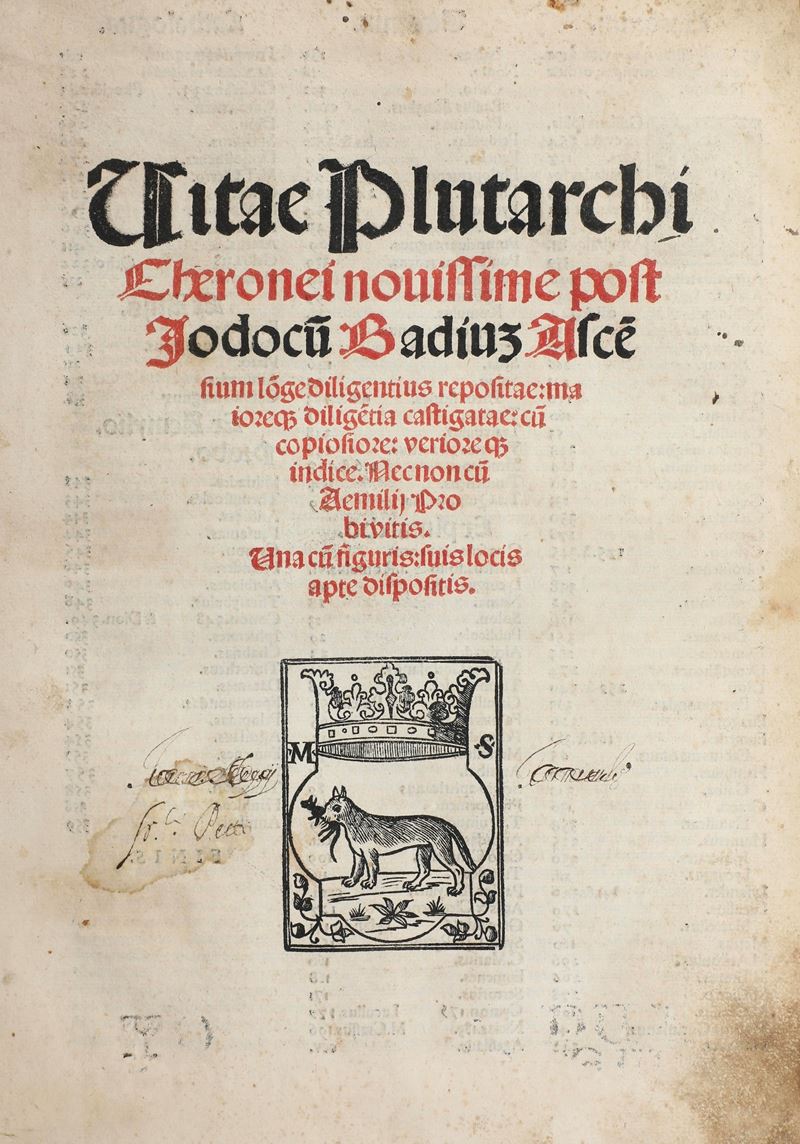 Uitae Plutarchi
Cheronei nouissime post
Jodocū Badiuʒ Ascē
sium lōge diligentius repositae: ma
ioreqꝫ diligētia castigatae: cū
copiosiore: verioreqꝫ
indice. Nec non cū
Aemilij Pro
bi vitis.
Una cū figuris: suis locis
apte dispositis.
M S